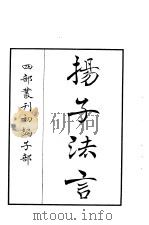 揚子法言
四部叢刊初編子部
mtoou.info